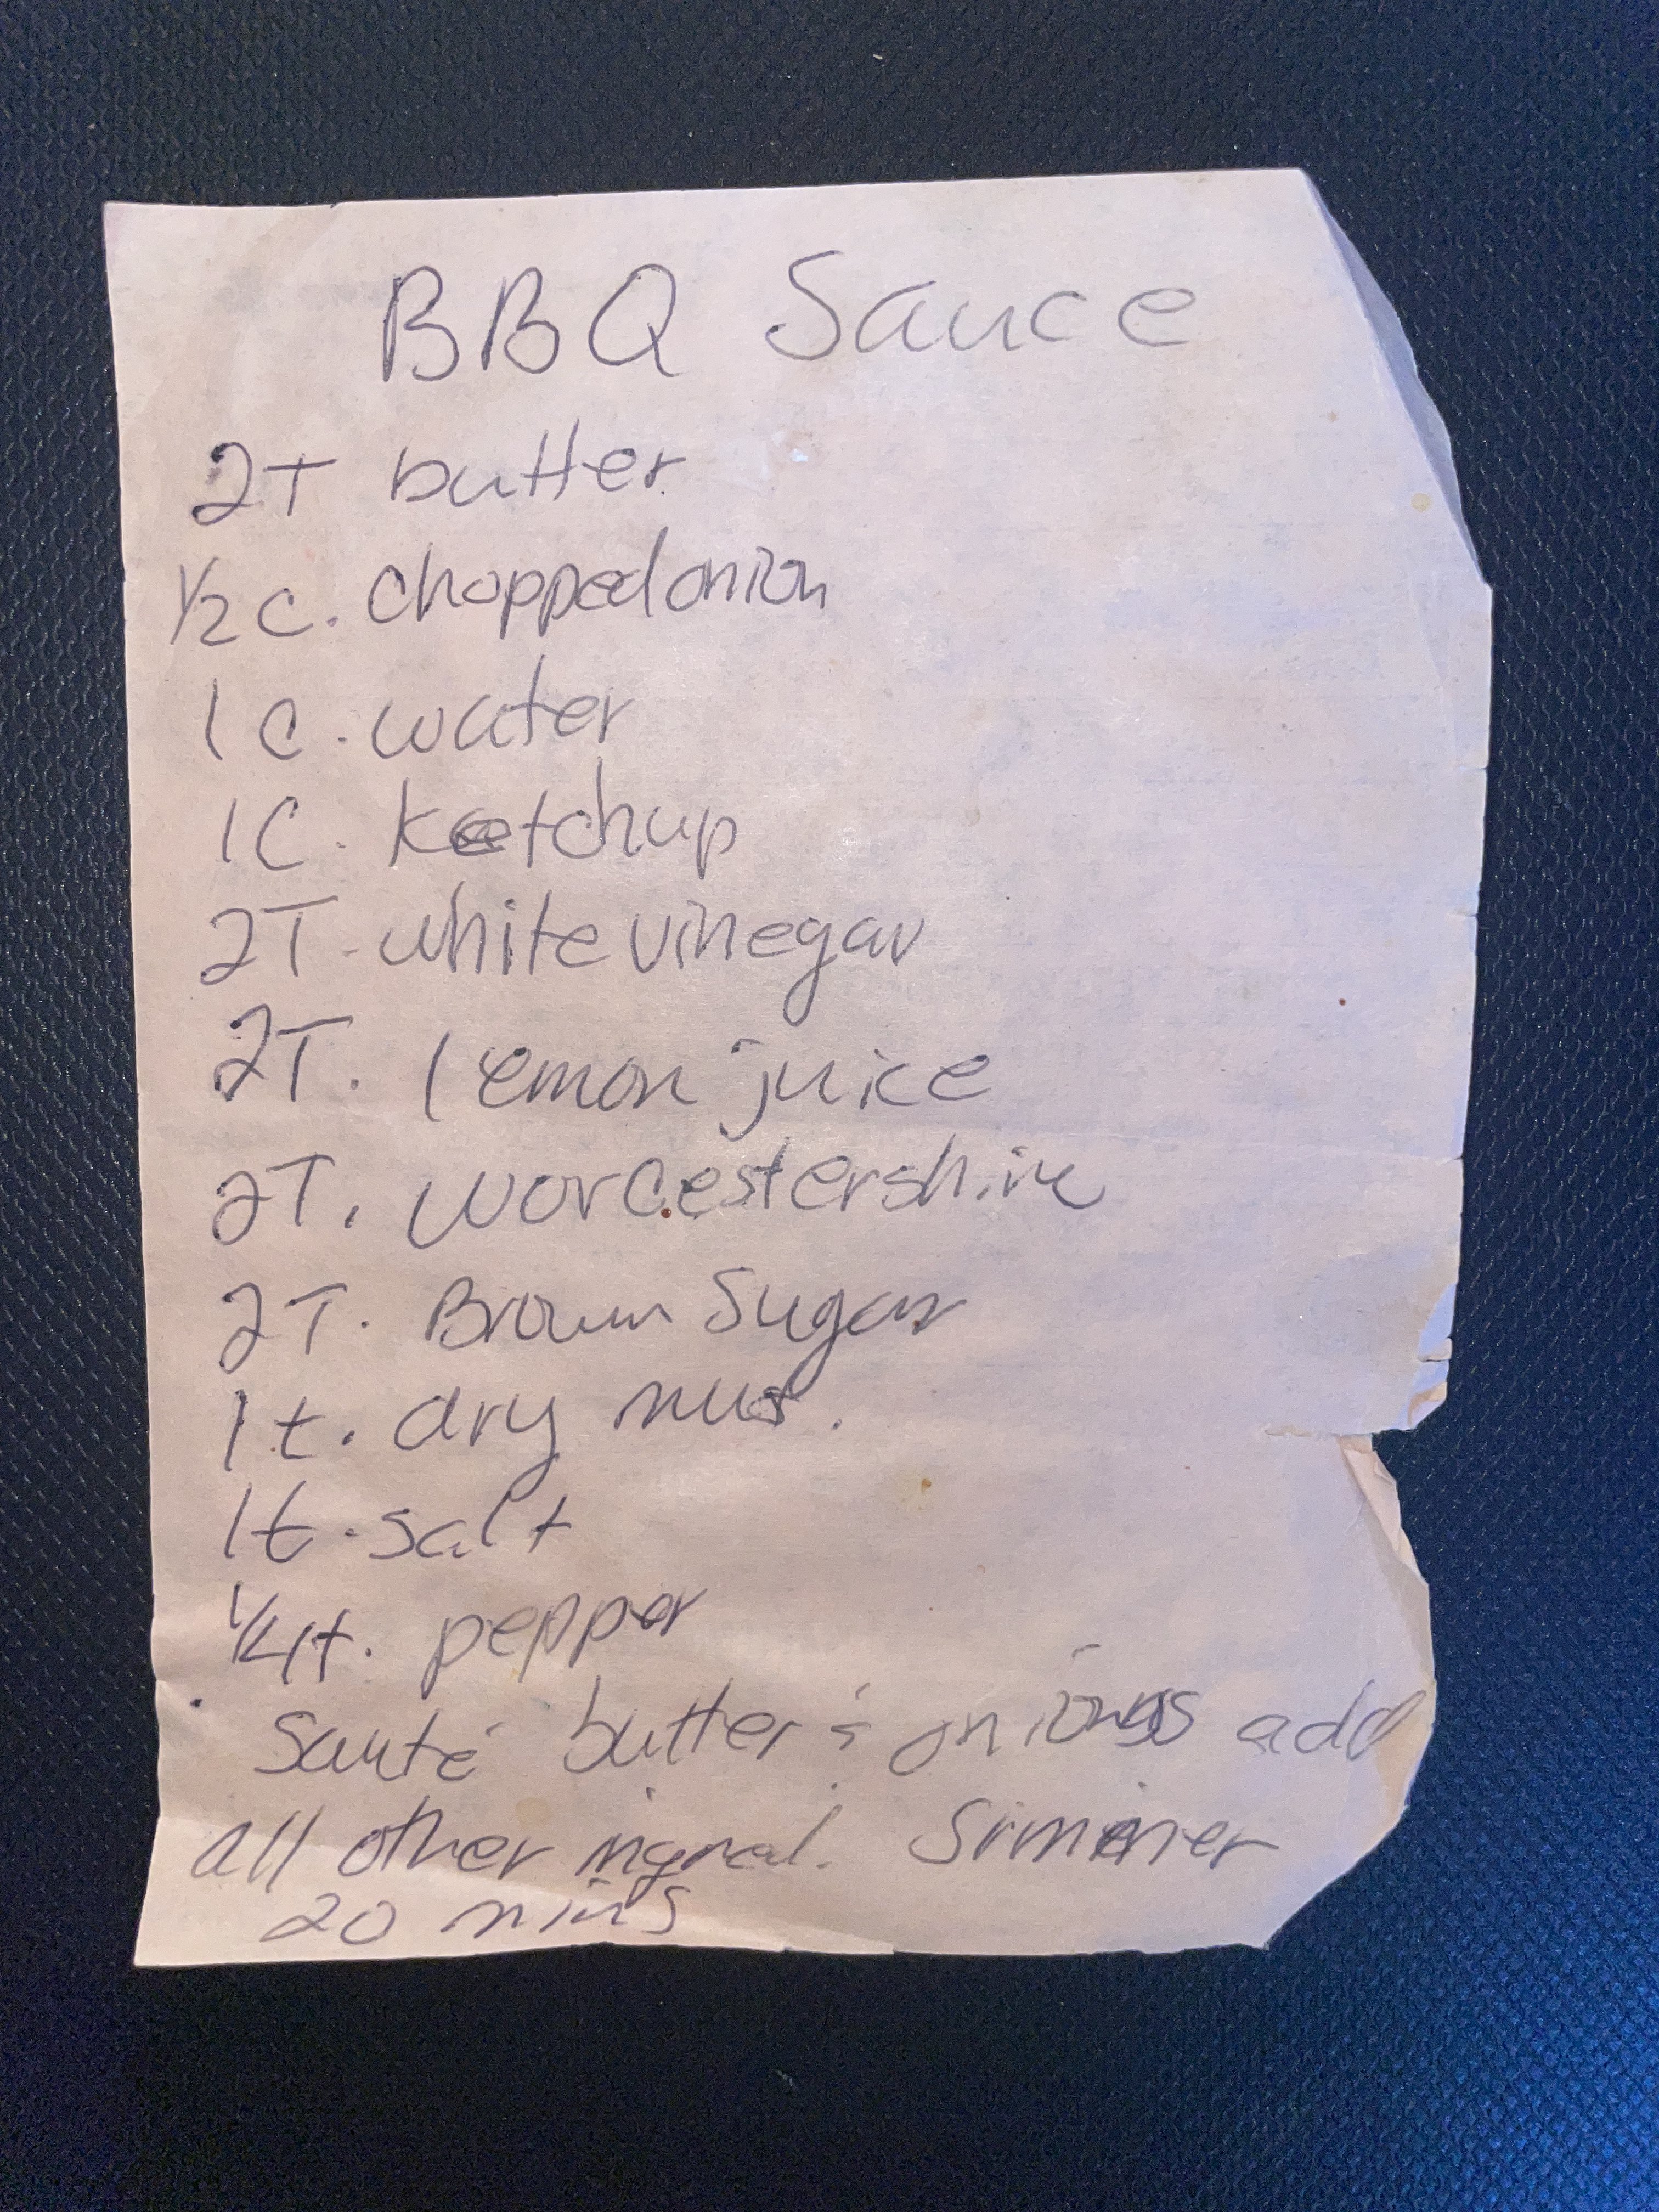 BBQ Sauce
2T butter
1/2 c. chopped onion
1 c. water
1C. ketchup
2T. white vinegar
2T. lemon juice
2T. worcestershire
2T. Brown Sugar
1t. dry mus.
1t. salt
1/4t. pepper
Sauté butter & onions add
all other ingred. Simmer
20 mins